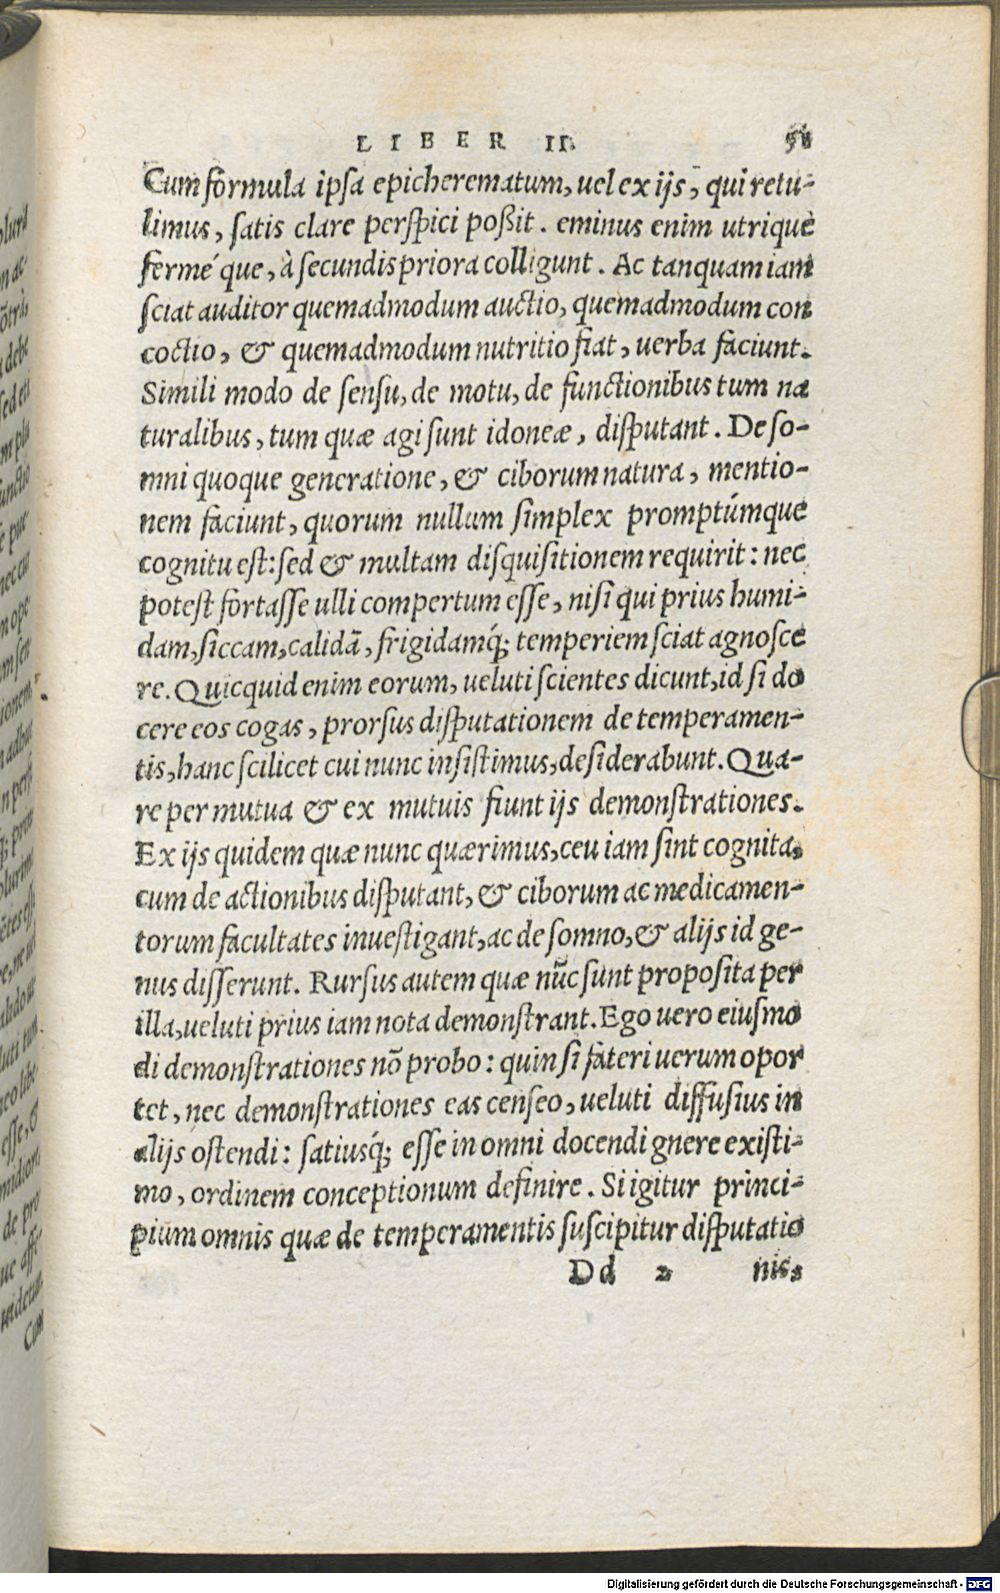 LIBER II.
Cum formula ipsa epicherematum, uel ex ijs, qui retu-
limus, satis clare perspici poßit. eminus enim utriquè
fermé que, à secundis priora colligunt. Ac tanquam iam
sciat auditor quemadmodum auctio, quemadmodum con
coctio, & quemadmodum nutritio fiat, uerba faciunt.
Simili modo de sensu, de motu, de functionibus tum na
turalibus, tum quæ agi sunt idoneæ, disputant. De so-
mni quoque generatione, & ciborum natura, mentio-
nem faciunt, quorum nullum simplex promptúmque
cognitu est: sed & multam disquisitionem requirit: nec
potest fortasse ulli compertum esse, nisi qui prius humi-
dam, siccam, calidã, frigidamq́; temperiem sciat agnosce
re. Quicquid enim eorum, ueluti scientes dicunt, id si do
cere eos cogas, prorsus disputationem de temperamen-
tis, hanc scilicet cui nunc insistimus, desiderabunt. Qua-
re per mutua & ex mutuis fiunt ijs demonstrationes.
Ex ijs quidem quæ nunc quærimus, ceu iam sint cognita,
cum de actionibus disputant, & ciborum ac medicamen-
torum facultates inuestigant, ac de somno, & alijs id ge-
nus disserunt. Rursus autem quæ nũc sunt proposita per
illa, ueluti prius iam nota demonstrant. Ego uero eiusmo
di demonstrationes nõ probo: quin si fateri uerum opor
tet, nec demonstrationes eas censeo, ueluti diffusius in
alijs ostendi: satiusq́; esse in omni docendi gnere existi-
mo, ordinem conceptionum definire. Si igitur princi-
pium omnis quæ de temperamentis suscipitur disputatio
Dd 2 nis,
Digitalisierung gefördert durch die Deutsche Forschungsgemeinschaft - DFG